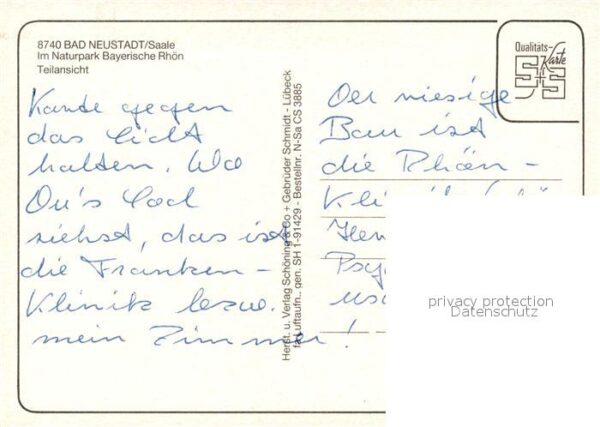 8740 BAD NEUSTADT/Saale
Im Naturpark Bayerische Rhön
Teilansicht
Karte gegen
das Licht
halten. Wo
Du's Loch
siehst, das ist
die Franken-
Klinik bezw.
mein Zimmer!
Herst. u. Verlag Schöning & Co + Gebrüder Schmidt - Lübeck
Luftaufn. gen. SH 1-91429 - Bestellnr. N-Sa CS 3885
Qualitäts-
Karte
S+S
Der riesige
Bau ist
die Rhön-
privacy protection
Datenschutz